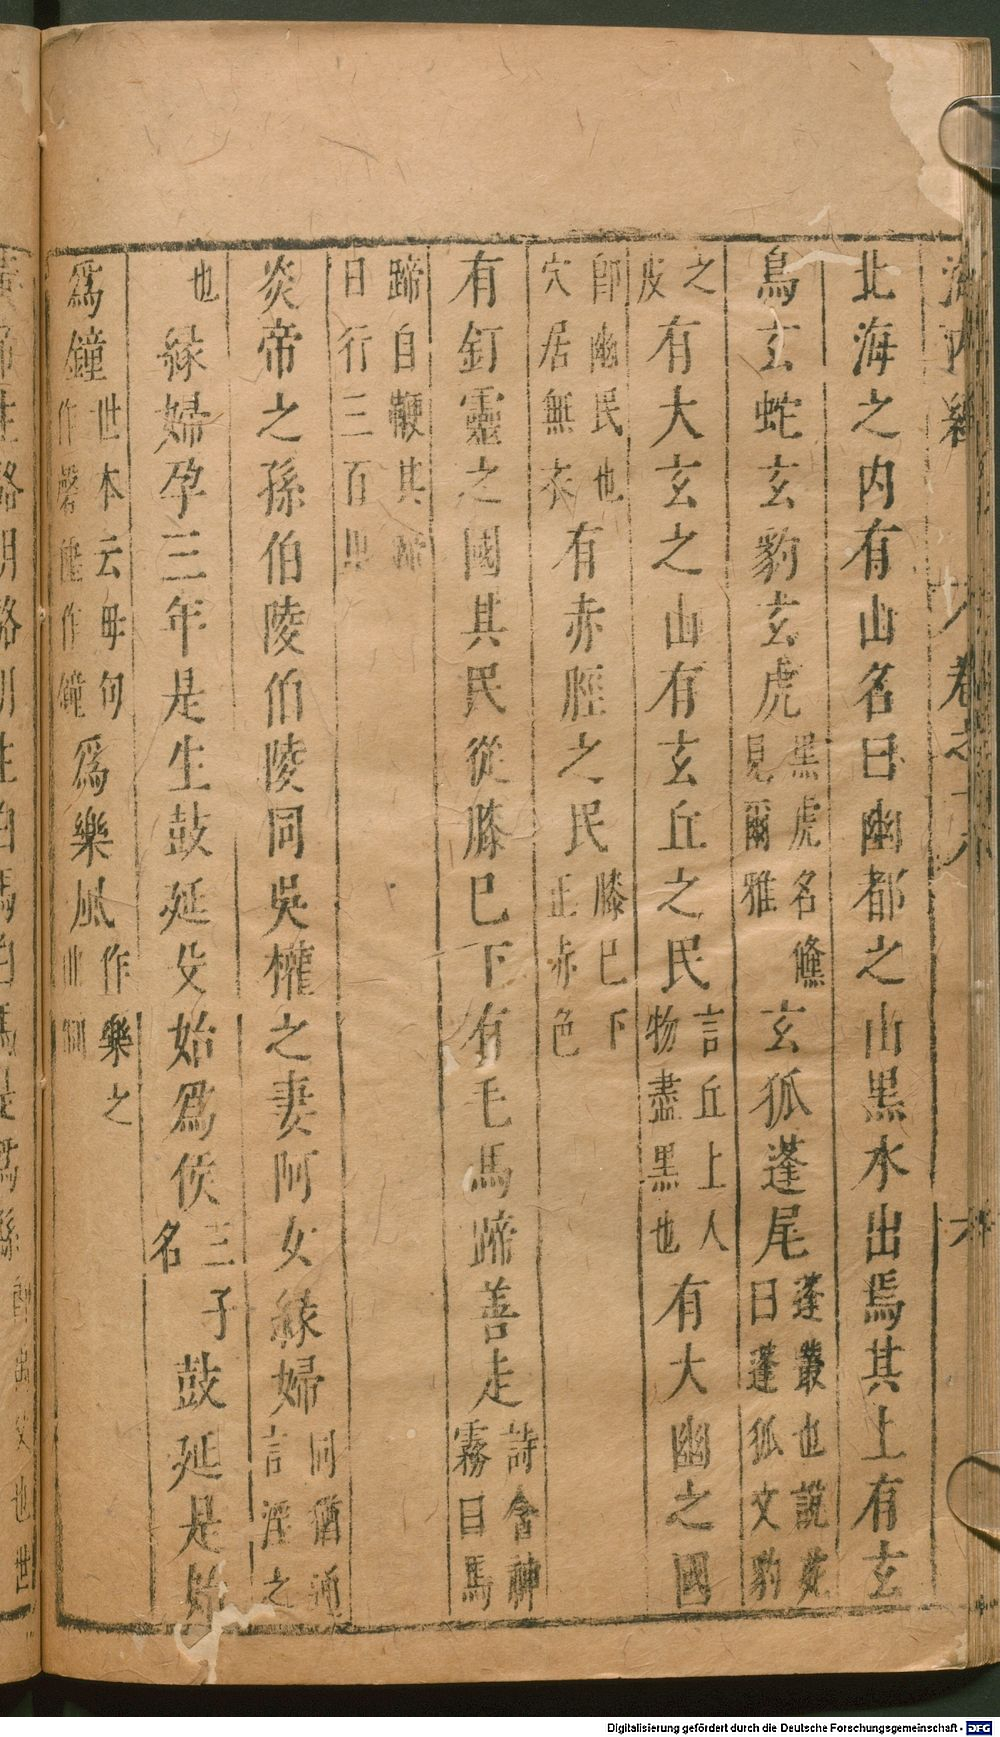 海內經 卷之十八 六
北海之內有山名曰幽都之山黑水出焉其上有玄
鳥玄蛇玄豹玄虎黑虎名虪見爾雅玄狐蓬尾蓬叢也說苑曰蓬狐文豹
之皮有大玄之山有玄丘之民言丘上人物盡黑也有大幽之國
卽幽民也穴居無衣有赤脛之民膝已下正赤色
有釘靈之國其民從膝巳下有毛馬蹄善走詩含神霧曰馬
蹄自鞭其蹄日行三百里
炎帝之孫伯陵伯陵同吳權之妻阿女緣婦同猶通言淫之
也緣婦孕三年是生鼓延殳始爲侯三子名鼓延是始
爲鐘世本云毋句作磬倕作鐘爲樂風作樂之曲制
Digitalisierung gefördert durch die Deutsche Forschungsgemeinschaft - DFG